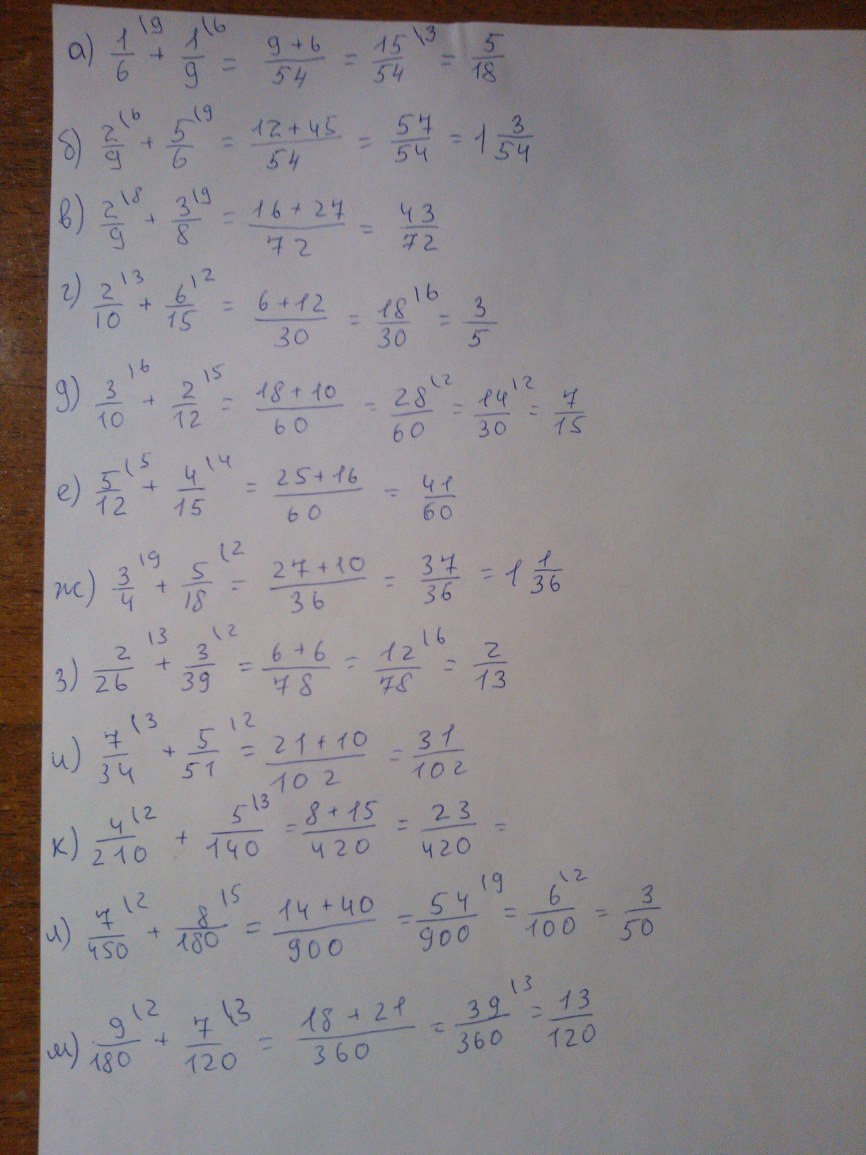 а) 1/6 \9 + 1/9 \6 = (9+6)/54 = 15/54 \3 = 5/18
б) 2/9 \6 + 5/6 \9 = (12+45)/54 = 57/54 = 1 3/54
в) 2/9 \8 + 3/8 \9 = (16+27)/72 = 43/72
г) 2/10 \3 + 6/15 \2 = (6+12)/30 = 18/30 \6 = 3/5
д) 3/10 \6 + 2/12 \5 = (18+10)/60 = 28/60 \2 = 14/30 \2 = 7/15
е) 5/12 \5 + 4/15 \4 = (25+16)/60 = 41/60
ж) 3/4 \9 + 5/18 \2 = (27+10)/36 = 37/36 = 1 1/36
з) 2/26 \3 + 3/39 \2 = (6+6)/78 = 12/78 \6 = 2/13
и) 7/34 \3 + 5/51 \2 = (21+10)/102 = 31/102
к) 4/210 \2 + 5/140 \3 = (8+15)/420 = 23/420 =
л) 7/450 \2 + 8/180 \5 = (14+40)/900 = 54/900 \9 = 6/100 \2 = 3/50
м) 9/180 \2 + 7/120 \3 = (18+21)/360 = 39/360 \3 = 13/120